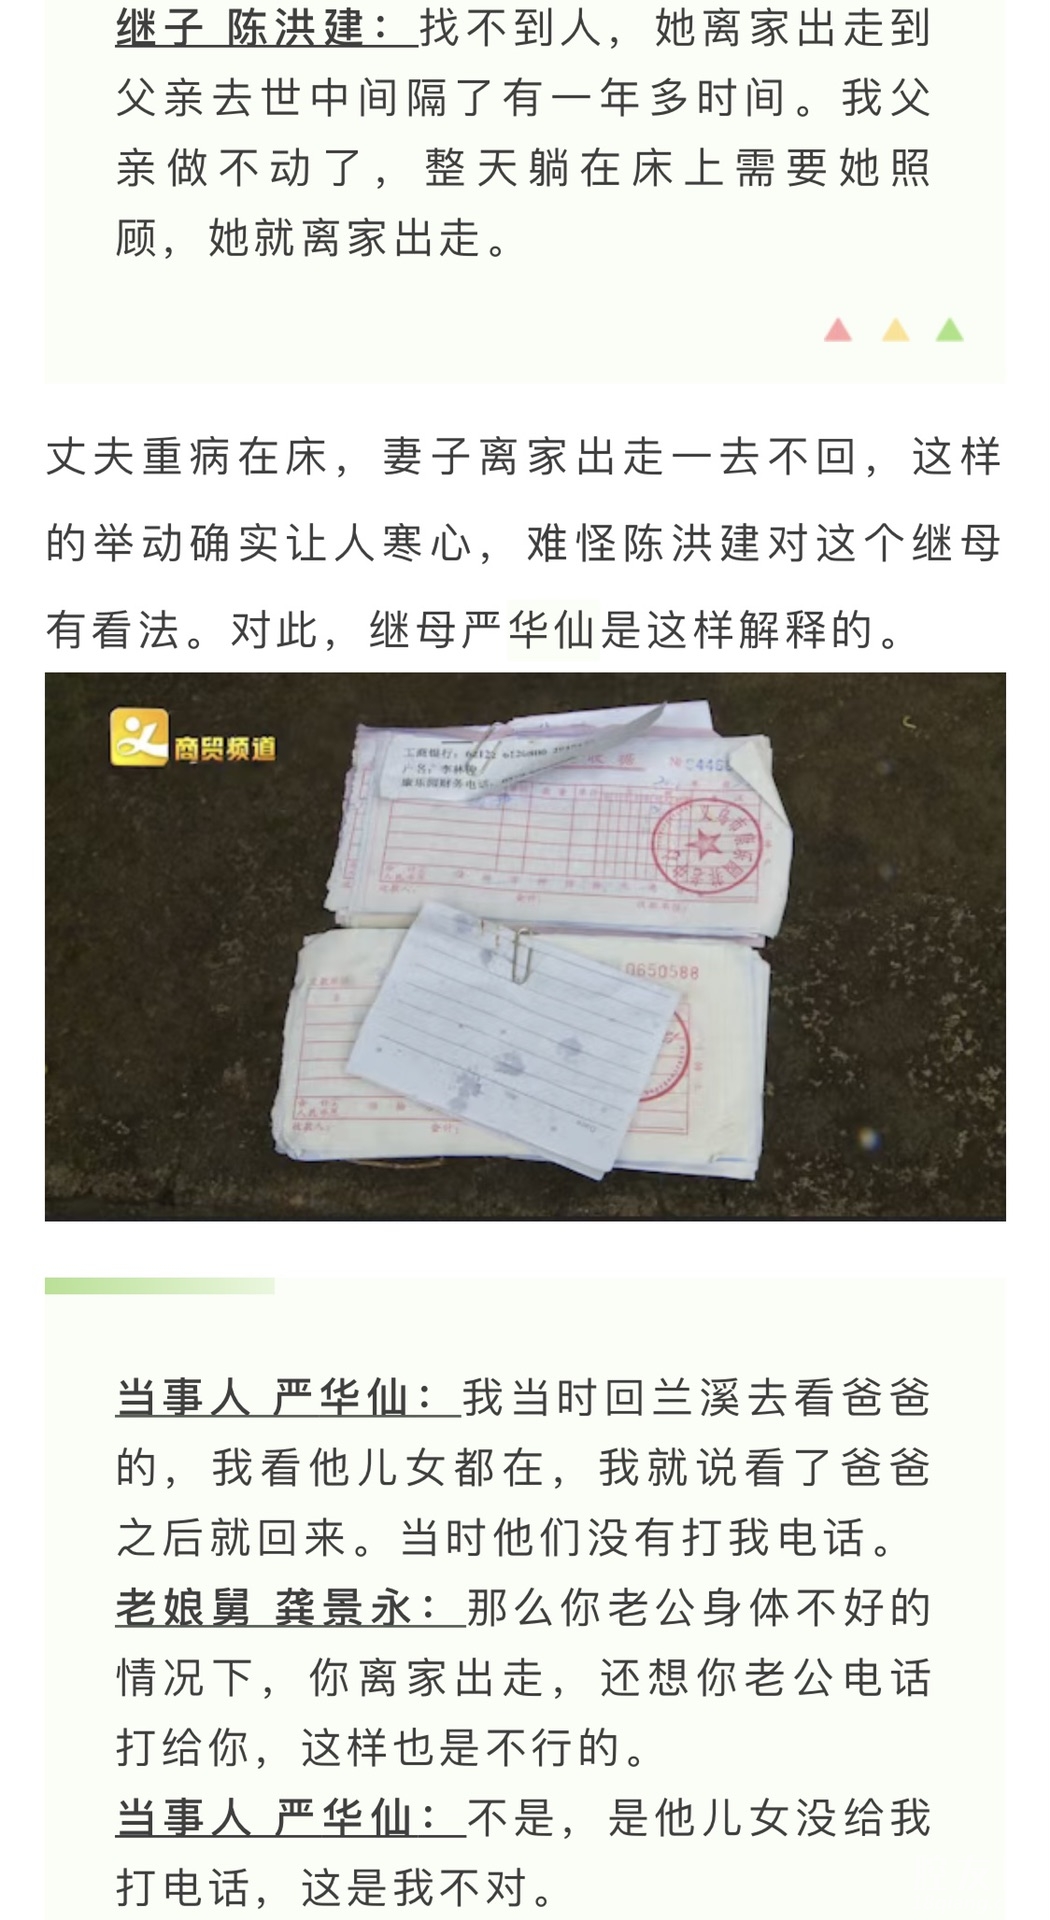 继子 陈洪建：找不到人，她离家出走到
父亲去世中间隔了有一年多时间。我父
亲做不动了，整天躺在床上需要她照
顾，她就离家出走。
丈夫重病在床，妻子离家出走一去不回，这样
的举动确实让人寒心，难怪陈洪建对这个继母
有看法。对此，继母严华仙是这样解释的。
商贸频道
工商银行：
户名：李林
康乐园财务电话：
收据
收款人：
会计：
0650588
收款人：
会计：
当事人 严华仙：我当时回兰溪去看爸爸
的，我看他儿女都在，我就说看了爸爸
之后就回来。当时他们没有打我电话。
老娘舅 龚景永：那么你老公身体不好的
情况下，你离家出走，还想你老公电话
打给你，这样也是不行的。
当事人 严华仙：不是，是他儿女没给我
打电话，这是我不对。